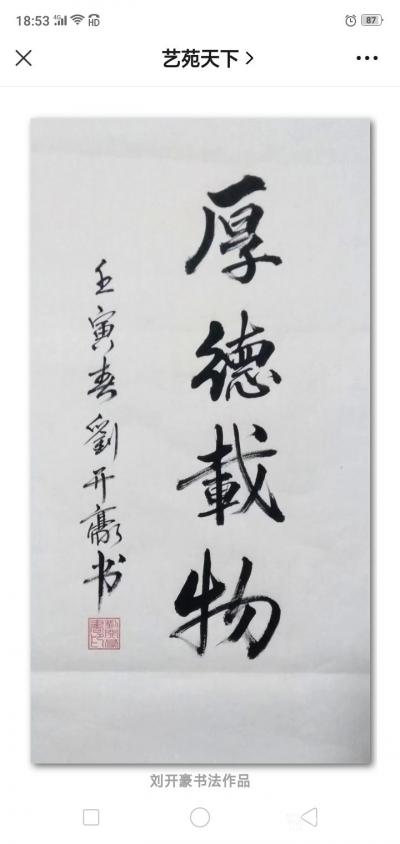 18:53
4G
HD
87
艺苑天下
厚德載物
壬寅春劉开豪书
刘开豪书法作品